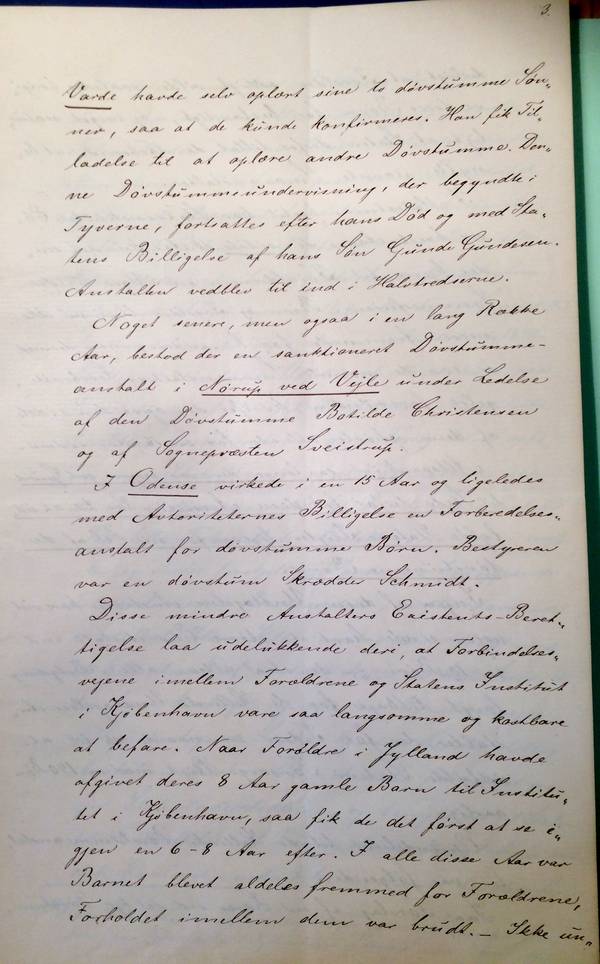 3.
Varde havde selv oplært sine to døvstumme Søn„
ner, saa at de kunde konfirmeres. Han fik Til„
ladelse til at oplære andre Døvstumme. Den„
ne Døvstummeundervisning, der begyndte i
Tyverne, fortsattes efter hans Død og med Sta„
tens Billigelse af hans Søn Gunde Gundesen.
Anstalten vedblev til ind i Halvtredserne.
Noget senere, men ogsaa i en lang Række
Aar, bestod der en sanktioneret Døvstumme-
anstalt i Nørup ved Vejle under Ledelse
af den Døvstumme Botilde Christensen
og af Sognepræsten Sveistrup.
I Odense virkede i en 15 Aar og ligeledes
med Autoriteternes Billigelse en Forberedelses„
anstalt for døvstumme Børn. Bestyreren
var en døvstum Skrædder Schmidt.
Disse mindre Anstalters Existents-Beret„
tigelse laa udelukkende deri, at Forbindelses„
vejene imellem Forældrene og Statens Institut
i Kjøbenhavn vare saa langsomme og kostbare
at befare. Naar Forældre i Jylland havde
afgivet deres 8 Aar gamle Barn til Institu„
tet i Kjøbenhavn, saa fik de det først at se i„
gjen en 6-8 Aar efter. I alle disse Aar var
Barnet blevet aldeles fremmed for Forældrene,
Forholdet imellem dem var brudt. – Ikke un„